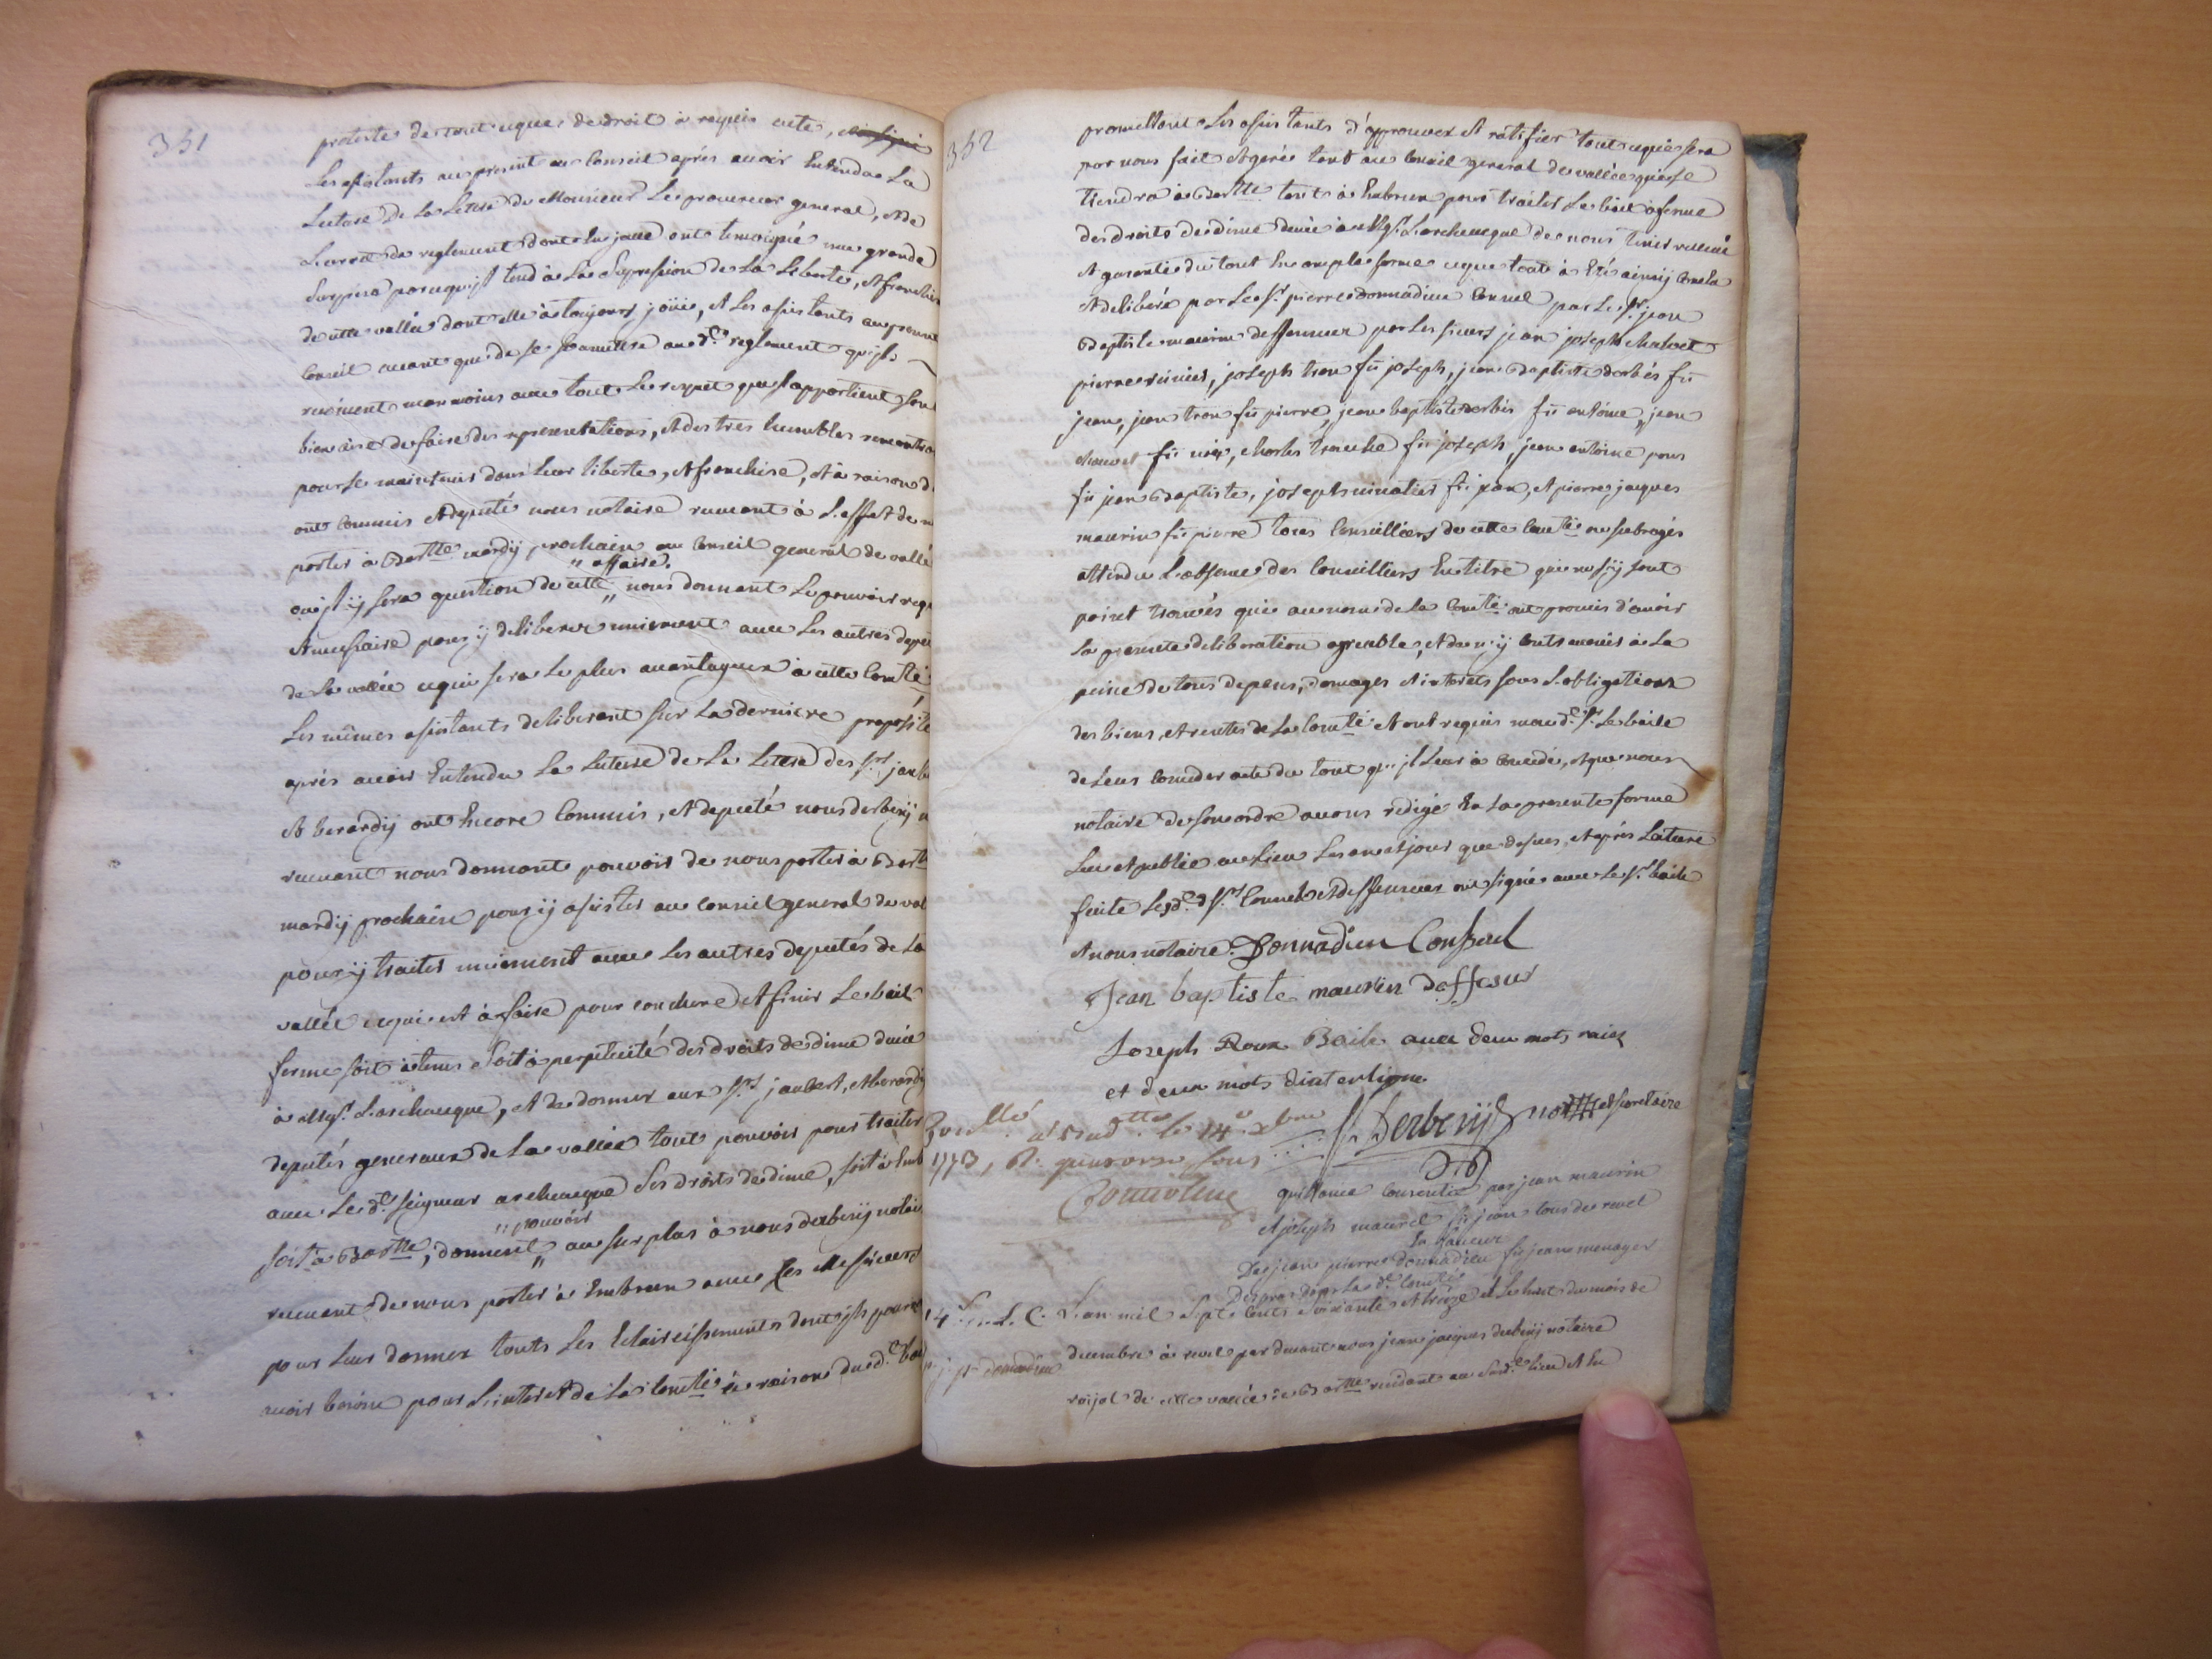 351
proteste de tout ceque de droit a requis acte,
Les asistants au present au Conseil aprés auoir Entendu La
Lecture de La Lettre de Monsieur Le procureur general, et de
L'arret de reglement dont En jceue ont temoigné une grande
Surprise parcequ'jl tend à La Supression de La Liberté, et franchise
de cette vallée dont elle à toujours joüie, et Les asistants au present
Conseil auant que de se Soumettre aud.t reglement qu'jls
reuerent neanmoins auec tout Le respect qu'jl appartient sont
bien aise de faire des representations, et des tres humbles remontra
pour se maintenir dans Leur liberté, et franchise, et à raison de
ont Commis et deputé nous notaire receuant à L'effet de n
porter à Bartte mardy prochain au Conseil general de vallé
ou jl ÿ sera question de cette „ affaire. „ nous donnant Le pouvoir requ
et necessaire pour ÿ deliberer uniement auec Les autres deput
de La vallée cequi sera Le plus auantageux à cette Comté
Les mêmes asistants deliberant sur La derniere proposition
aprés auoir Entendu La Lecture de La Lettre des Srs jaube
et berardy ont Encore Commis, et deputé nous derbezÿ n
receuant nous donnant pouvoir de nous porter à Bartte
mardy prochain pour ÿ asister au Conseil general de val
pour ÿ traiter uniement auec Les autres deputés de La
vallée cequi est à faire pour conclure et finir Le bail
ferme soit à tems soit à perpetuité des droits de dime deüe
à Msgr L'archeueque, et de donner aux Srs jaubert, et berardy
deputés generaux de La vallée tout pouvoir pour traiter
auec Led.t seigneur archeueque Les droits de dime, soit à Emb
soit à Bartte, donnent „ pouvoir „ au surplus à nous derbezÿ notai
receuant de nous porter à Embrun auec Les Messieurs
pour Leur donner touts Les Eclaircissements dont jls pourro
auoir besoin pour L'interet de La Comté à raison dud.t bai
352
promettant Les asistants d'approuver et ratifier tout cequi sera
par nous fait et geré tant au Conseil general de vallée qui se
tiendra à Bartte tant à Embrun pour traiter Le bail à ferme
des droits de dime deüe à Msgr L'archeueque de nous tenir relleué
et garantie du tout En ample forme ceque tout à Eté ainsÿ Conclu
et deliberé par Le Sr pierre donnadieu Consul par Le Sr jean
Baptiste maurin deffenseur par Les sieurs jean joseph chalvet
pierre reinier, joseph tron fû joseph, jean Baptiste derbés fû
jean, jean tron fû pierre, jean baptiste derbés fû antoine, jean
chauvet fû , charles trouche fû joseph, jean antoine pons
fû jean Baptiste, joseph fû jean, et pierre jacques
maurin fû pierre tous Conseilliers de cette Comté ou subrogés
attendu L'absence des Conseilliers En titre qui ne s'ÿ sont
point trouvés qui au nom de La Comté ont promis d'auoir
La presente deliberation agreable, et de n'ÿ contreuenir à La
peine de tous depens, domages et interets sous L'obligation
des biens, et rentes de La Comté et ont requis maud.t Sr Le baile
de Leur Conceder acte du tout qu'jl Leur à Concédé, et que nous
notaire de son ordre auons redigé En La presente forme
Leu et publié au Lieu Les an et jour que dessus, et aprés Lecture
faite Lesd.ts Srs Consul et deffenseur ont signé auec Le Sr baile
et nous notaire. Donnadieu Consul
Jean baptiste maurin deffesur
Joseph Roux Baile auec deux mots raiez
et deux mots d'interligne
J.J. Derbezÿ not et secretaire
le 14e xbre
1773, R. quatorze sous
quittance Consentie par jean maurin
et joseph maurel fû jean tous de revel
En faueur
De jean pierre donnadieu fû jean menager
L'an mil Sept Cents Soixante et treize et Le huit du mois de
decembre à revel par deuant nous jean jacques derbezÿ notaire
roÿal de cette vallée de Bartte residant au Susd.t Lieu et En